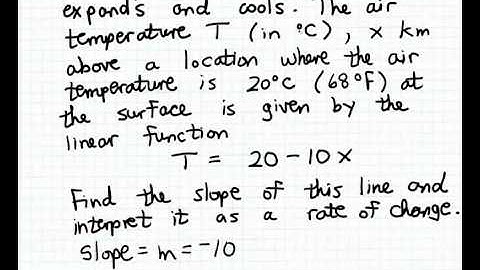 expands and cools. The air
temperature T (in °C), x km
above a location where the air
temperature is 20°C (68°F) at
the surface is given by the
linear function
T = 20 - 10x
Find the slope of this line and
interpret it as a rate of change.
Slope = m = -10